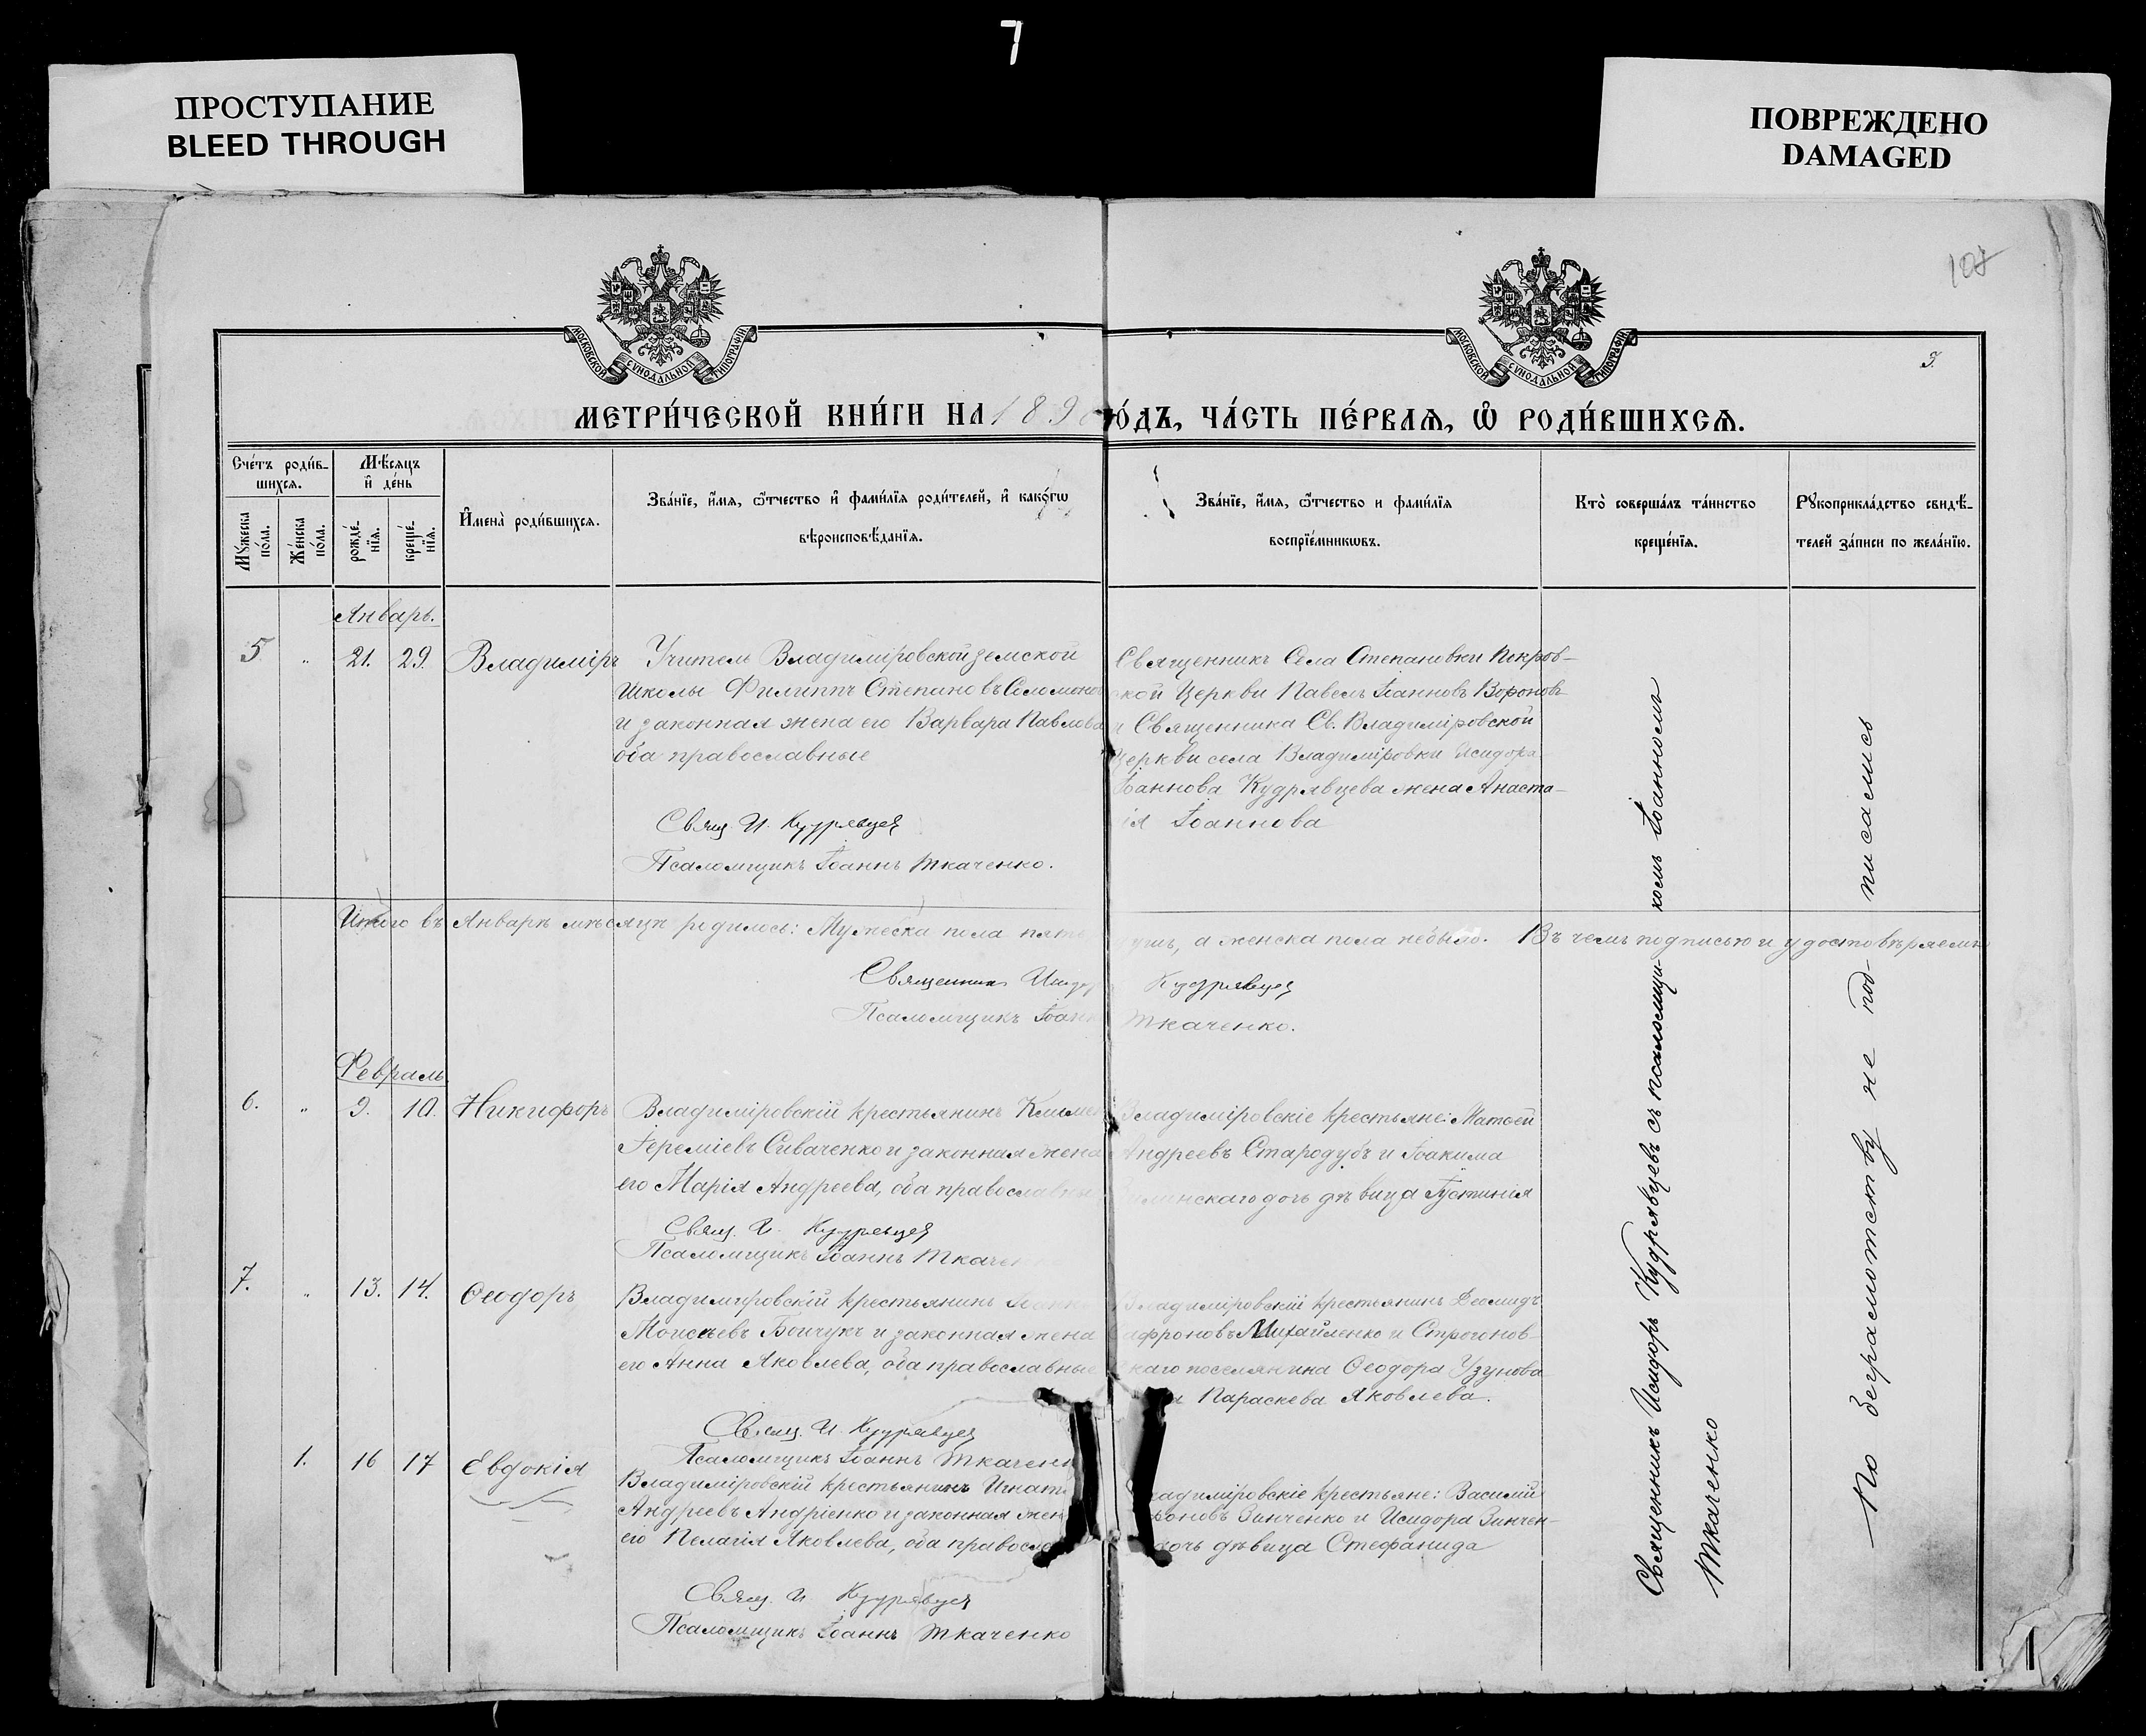 7
ПРОСТУПАНИЕ
BLEED THROUGH
ПОВРЕЖДЕНО
DAMAGED
107
МОСКОВСКОЙ СѴНОДАЛЬНОЙ ТИПОГРАФІИ
МОСКОВСКОЙ СѴНОДАЛЬНОЙ ТИПОГРАФІИ
3.
МЕТРИ́ЧЕСКОЙ КНИ́ГИ НА 189 го́дъ, ЧА́СТЬ ПЕ́РВАѦ, Ѡ҆ РОДИ́ВШИХСѦ.
Сче́тъ роди́в-
шихсѧ.
Мѣ́сѧцъ
и҆ де́нь
Мꙋ́жеска
по́ла.
Же́нска
по́ла.
рожде́-
нїѧ.
креще́-
нїѧ.
И҆мена̀ роди́вшихсѧ.
Зва́нїе, и҆́мѧ, ѻ҆́тчество и҆ фами́лїѧ роди́телей, и҆ како́гѡ
вѣроисповѣ́данїѧ.
Зва́нїе, и҆́мѧ, ѻ҆́тчество и фами́лїѧ
воспрїе́мникѡвъ.
Кто̀ соверша́лъ та́инство
креще́нїѧ.
Рꙋкоприкла́дство свидѣ́-
телей за́писи по жела́нїю.
Январь.
5. " 21. 29. Владиміръ
Учитель Владиміровской земской
школы Филиппъ Степановъ Соломонов
и законная жена его Варвара Павлова
оба православные
Свящ. И. Кудрявцев
Псаломщикъ Іоаннъ Ткаченко.
Священникъ Села Степановки Покров-
ской Церкви Павелъ Іоанновъ Вороновъ
и Священника Св. Владиміровской
Церкви села Владиміровки Исидора
Іоаннова Кудрявцева жена Анаста-
ія Іоаннова
Итого въ Январѣ мѣсяцѣ родилось: Мужеска пола пять душъ, а женска пола небыло. Въ чемъ подписью и удостовѣряемъ
Священник Исидор Кудрявцев
Псаломщикъ Іоанн Ткаченко.
Февраль.
6. " 9. 10. Никифоръ
Владиміровскій крестьянинъ Климен
Іереміевъ Сиваченко и законная жена
его Марія Андреева, оба православны
Свящ. И. Кудрявцев
Псаломщикъ Іоаннъ Ткачен
Владиміровскіе крестьяне: Матѳей
Андреевъ Стародубъ и Іоакима
дочь дѣвица Іустинія
7. " 13. 14. Ѳеодоръ
Владиміровскій крестьянинъ Іоанн
Моисѣевъ Бойчукъ и законная жена
его Анна Яковлева, оба православные
Свящ. И. Кудрявцев
Псаломщикъ Іоаннъ Ткаченк
Владиміровскій крестьянинъ Діомидъ
Сафроновъ Михайленко и Строгонов-
скаго поселянина Ѳеодора Узунова
Параскева Яковлева.
1. 16 17 Евдокія
Владиміровскій крестьянинъ Игнаті
Андреевъ Андріенко и законная жен
его Пелагія Яковлева, оба правосла
Свящ. И. Кудрявцев
Псаломщикъ Іоаннъ Ткаченко
ладиміровскіе крестьяне: Василій
Зинченко и Исидора Зинчен-
дочь дѣвица Стефанида
Священникъ Исидоръ Кудрявцевъ съ псаломщи-комъ Іоанномъ
Ткаченко
По безграмотству не под-писались